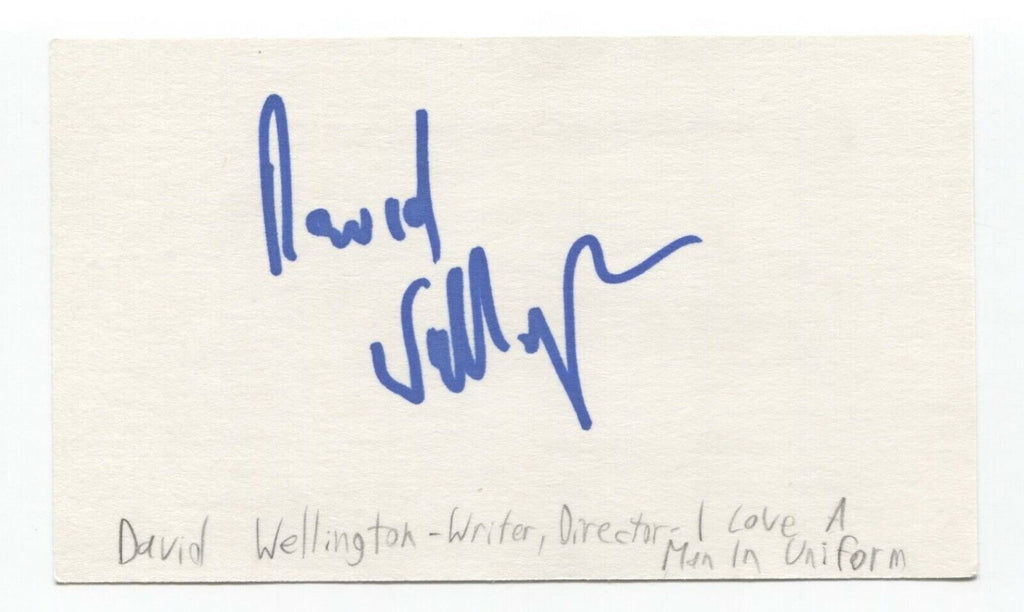 David
Wellington
David Wellington-Writer, Director-I Love A
Man In Uniform